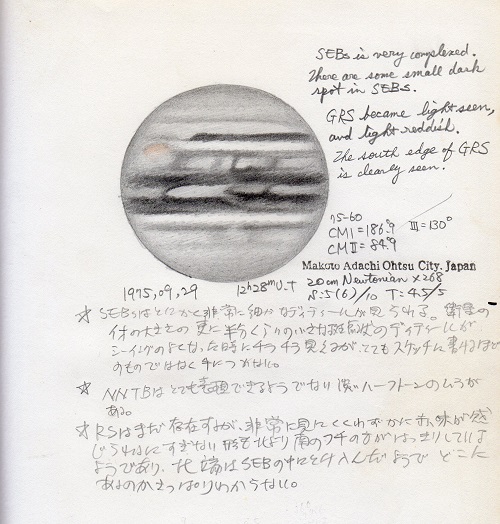 SEBs is very complexed.
There are some small dark
spot in SEBs.
GRS became light seen,
and light reddish.
The south edge of GRS
is clearly seen.
75-60
CMI = 186.°9 III = 130°
CMII = 84.°9
Makoto Adachi Ohtsu City, Japan
1975,09,29 12h28mU.T 20cm Newtonian ×268
S:5(6)/10 T=4.5/5
☆ SEBsはとにかく非常に細かなディティールが見られる。衛星の
の大きさの 更に半分くらいの小さな斑点状のディティールが
シーイングのよくなった時にチラチラ見えるが、とてもスケッチに書けるほど
のものではなく手につかない。
☆ NNTBはとても表現できるようでない淡いハーフトーンのムラが
ある。
☆ RSはまだ存在するが、非常に見にくくわずかに赤味が感
じられるにすぎない 形も北より南のフチの方がはっきりしている
ようであり、北端はSEBの中にとけ込んだようで どこに
あるのかさっぱりわからない。